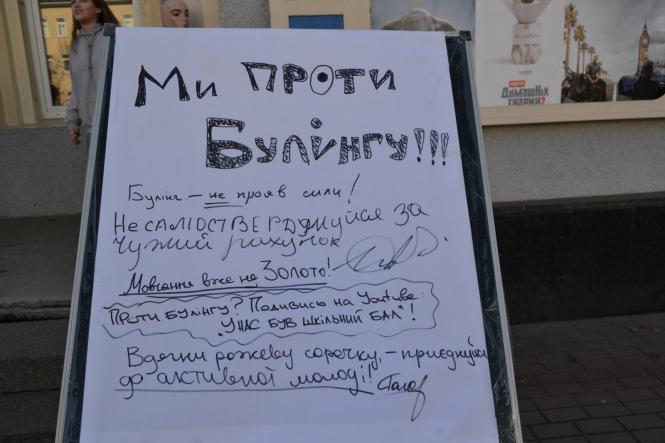 Ми проти
Булінгу!!!
Булінг – не прояв сили!
Не самостверджуйся за
чужий рахунок
Мовчання вже не Золото!
Проти булінгу? Подивись на Youtube:
"У НАС БУВ ШКІЛЬНИЙ БАЛ"!
Вдягни рожеву сорочку, – приєднуйся
до активної молоді!
Домашніх
тварин 2